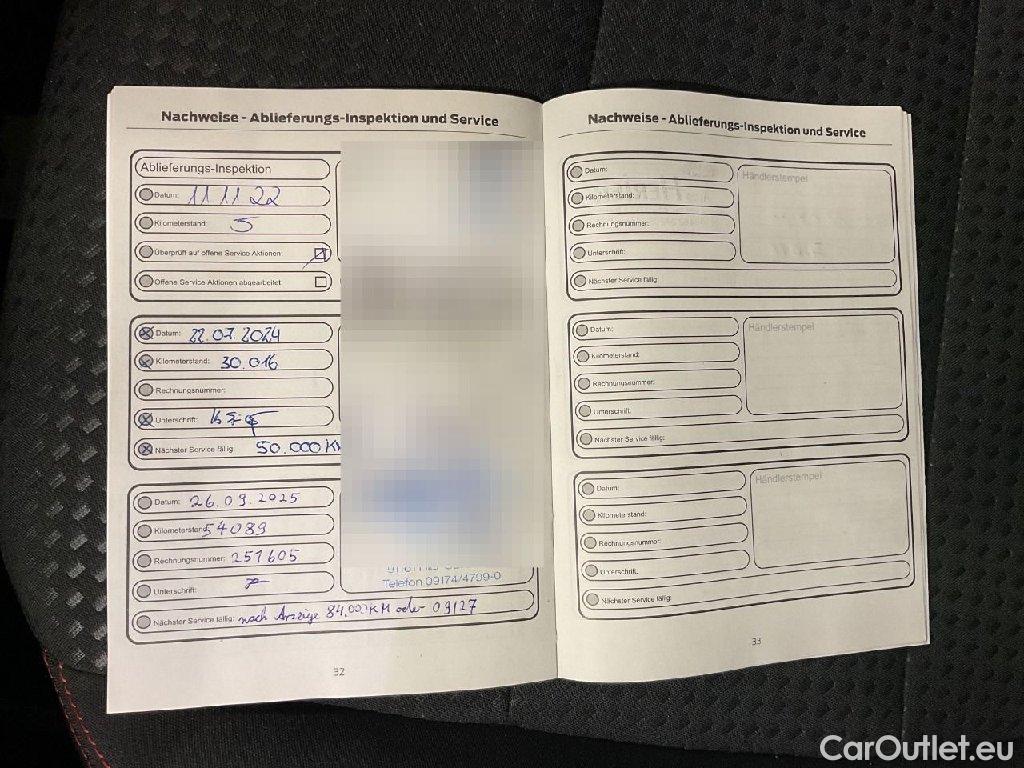 Nachweise - Ablieferungs-Inspektion und Service
Ablieferungs-Inspektion
Datum: 11 11 22
Kilometerstand: 5
Überprüft auf offene Service Aktionen:
Offene Service Aktionen abgearbeitet:
Datum: 22.07.2024
Kilometerstand: 30.016
Rechnungsnummer:
Unterschrift:
Nächster Service fällig: 50.000 KM
Datum: 26.09.2025
Kilometerstand: 54089
Rechnungsnummer: 251605
Unterschrift:
Telefon 09174/4799-0
Nächster Service fällig: nach Anzeige 84.000 KM oder 09/27
32
Nachweise - Ablieferungs-Inspektion und Service
Datum:
Händlerstempel
Kilometerstand:
Rechnungsnummer:
Unterschrift:
Nächster Service fällig:
Datum:
Händlerstempel
Kilometerstand:
Rechnungsnummer:
Unterschrift:
Nächster Service fällig:
Datum:
Händlerstempel
Kilometerstand:
Rechnungsnummer:
Unterschrift:
Nächster Service fällig:
33
CarOutlet.eu